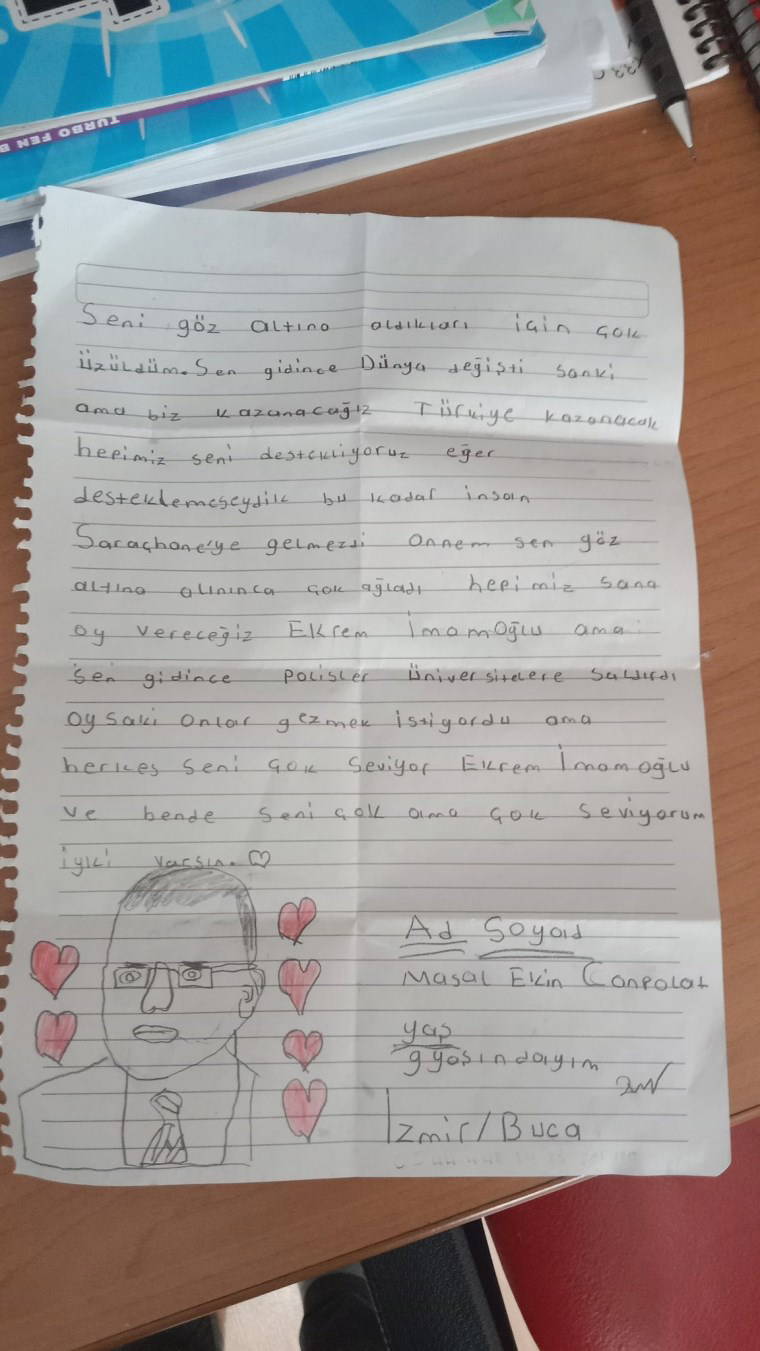 TURBO FEN B
Seni göz altına aldıkları için çok
üzüldüm. Sen gidince Dünya değişti sanki
ama biz kazanacağız Türkiye kazanacak
hepimiz seni destekliyoruz eğer
desteklemeseydik bu kadar insan
Saraçhane'ye gelmezdi annem sen göz
altına alınınca çok ağladı hepimiz sana
oy vereceğiz Ekrem İmamoğlu ama
sen gidince polisler üniversitelere saldırdı
oysaki onlar gezmek istiyordu ama
herkes seni çok seviyor Ekrem İmamoğlu
ve bende seni çok ama çok seviyorum
iyiki varsın. ♡
Ad Soyad
Masal Ekin Canpolat
yaş
9 yaşındayım
İzmir/Buca